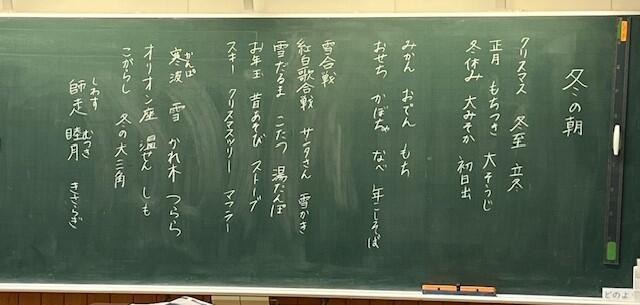 冬の朝
クリスマス 冬至 立冬
正月 もちつき 大そうじ
冬休み 大みそか 初日出
みかん おでん もち
おせち かぼちゃ なべ 年こしそば
雪合戦
紅白歌合戦 サンタさん 雪かき
雪だるま こたつ 湯たんぽ
お年玉 昔あそび ストーブ
スキー クリスマスツリー マフラー
寒波 雪 かれ木 つらら
かんぱ
オリオン座 温せん しも
こがらし 冬の大三角
師走 睦月 きさらぎ
しわす むつき
どのよ